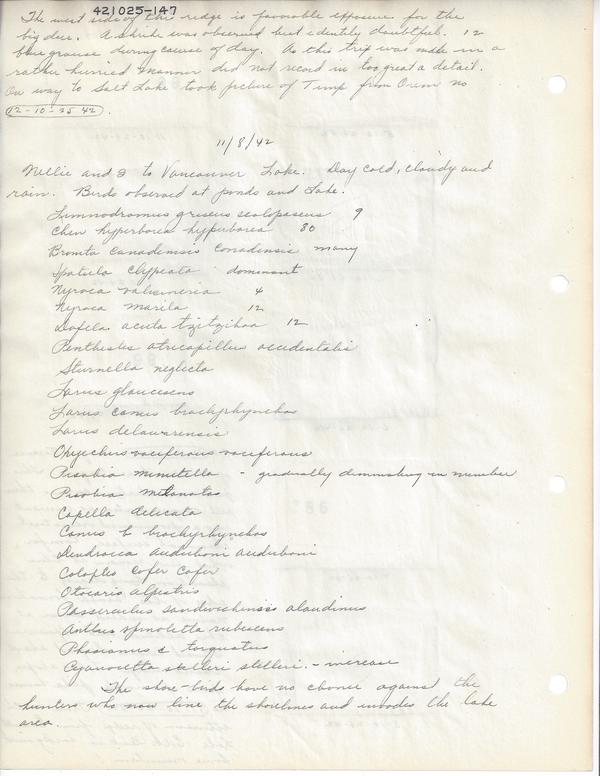 421025-147
The west side of the ridge is favorable exposure for the
big deer. A shrike was observed but identity doubtful. 12
blue grouse during course of day. As this trip was made in a
rather hurried manner did not record in too great a detail.
On way to Salt Lake took picture of Timp from Orem no
12-10-25 42.
11/8/42
Nellie and I to Vancouver Lake. Day cold, cloudy and
rain. Birds observed at ponds and Lake.
Limnodromus griseus scolopaseus 9
Chen hyperborea hyperborea 80
Branta canadensis canadensis many
Spatula clypeata dominant
Nyroca valisineria 4
Nyroca marila 12
Dafela acuta tzitzihoa 12
Penthestes atricapillus occidentalis
Sturnella neglecta
Larus glaucescens
Larus canus brachyrhynchos
Larus delawarensis
Oxyechus vociferous vociferous
Pisobia minutella - gradually diminishing in number
Pisobia melanotos
Capella delicata
Corvus b brachyrhynchos
Dendroica auduboni auduboni
Colaptes cafer cafer
Otocoris alpestris
Passerculus sandwichensis alaudinus
Anthus spinoletta rubescens
Phasianus c torquatus
Cyanocitta stelleri stelleri. - increase
The shore-birds have no chance against the
hunters who now line the shorelines and invades the lake
area.